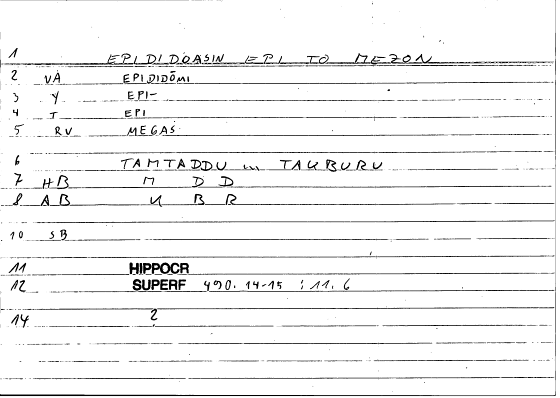 1 EPIDIDOASIN EPI TO MEZON
2 VA EPIDIDŌMI
3 Y EPI-
4 T EPI
5 RV MEGAS
6 TAMTADDU TAKBURU
7 HB M D D
8 AB K B R
10 SB
11 HIPPOCR
12 SUPERF 490.14-15 : 11.6
14 2